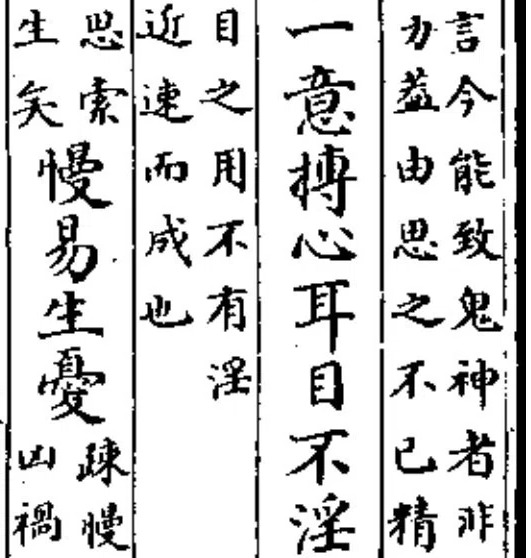 言今能致鬼神者非
力葢由思之不已精
一意搏心耳目不淫
目之用不有淫
近速而成也
思索
生矣
慢易生憂
踈慢
凶禍